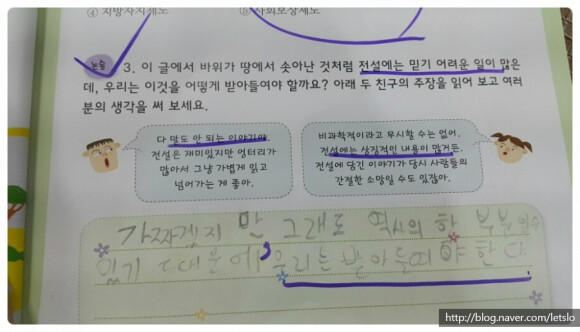 ④ 지방자치제도
⑤ 사회보장제도
논술 3. 이 글에서 바위가 땅에서 솟아난 것처럼 전설에는 믿기 어려운 일이 많은
데, 우리는 이것을 어떻게 받아들여야 할까요? 아래 두 친구의 주장을 읽어 보고 여러
분의 생각을 써 보세요.
다 말도 안 되는 이야기야.
전설은 재미있지만 엉터리가
많아서 그냥 가볍게 읽고
넘어가는 게 좋아.
비과학적이라고 무시할 수는 없어.
전설에는 상징적인 내용이 많거든.
전설에 담긴 이야기가 당시 사람들의
간절한 소망일 수도 있잖아.
가짜겠지 만 그래도 역사의 한 부분일수
있기 때문에, 우리는 받아들여 야 한다.
http://blog.naver.com/letslo